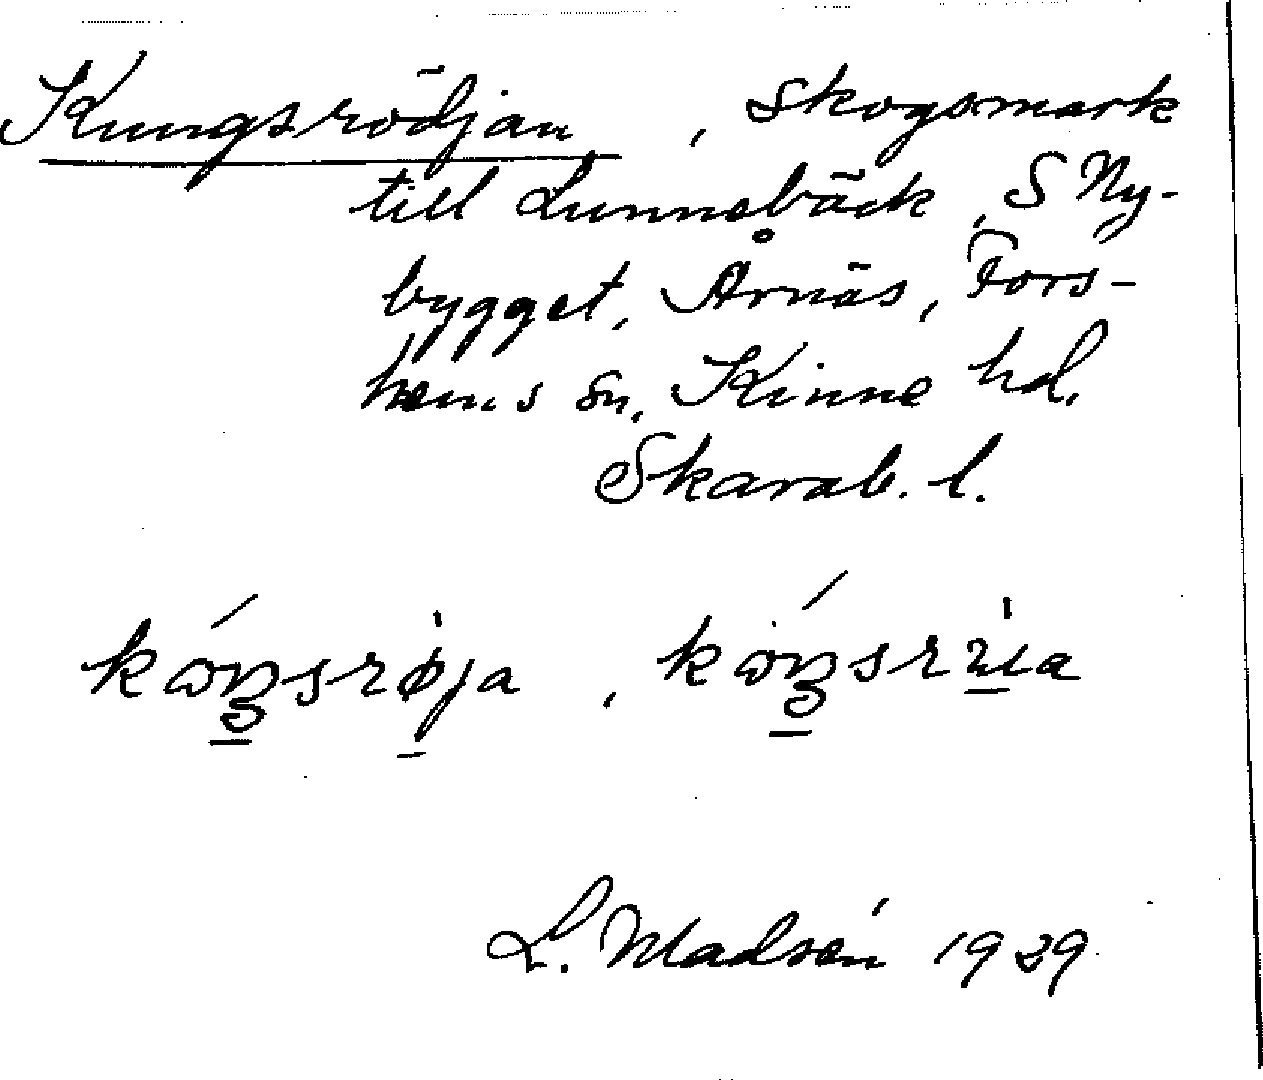 Kungsrödjan, Skogsmark
till Lunnebäck, S Ny-
bygget, Årnäs, Fors-
hems sn, Kinne hd,
Skarab. l.
L. Madsén 1939